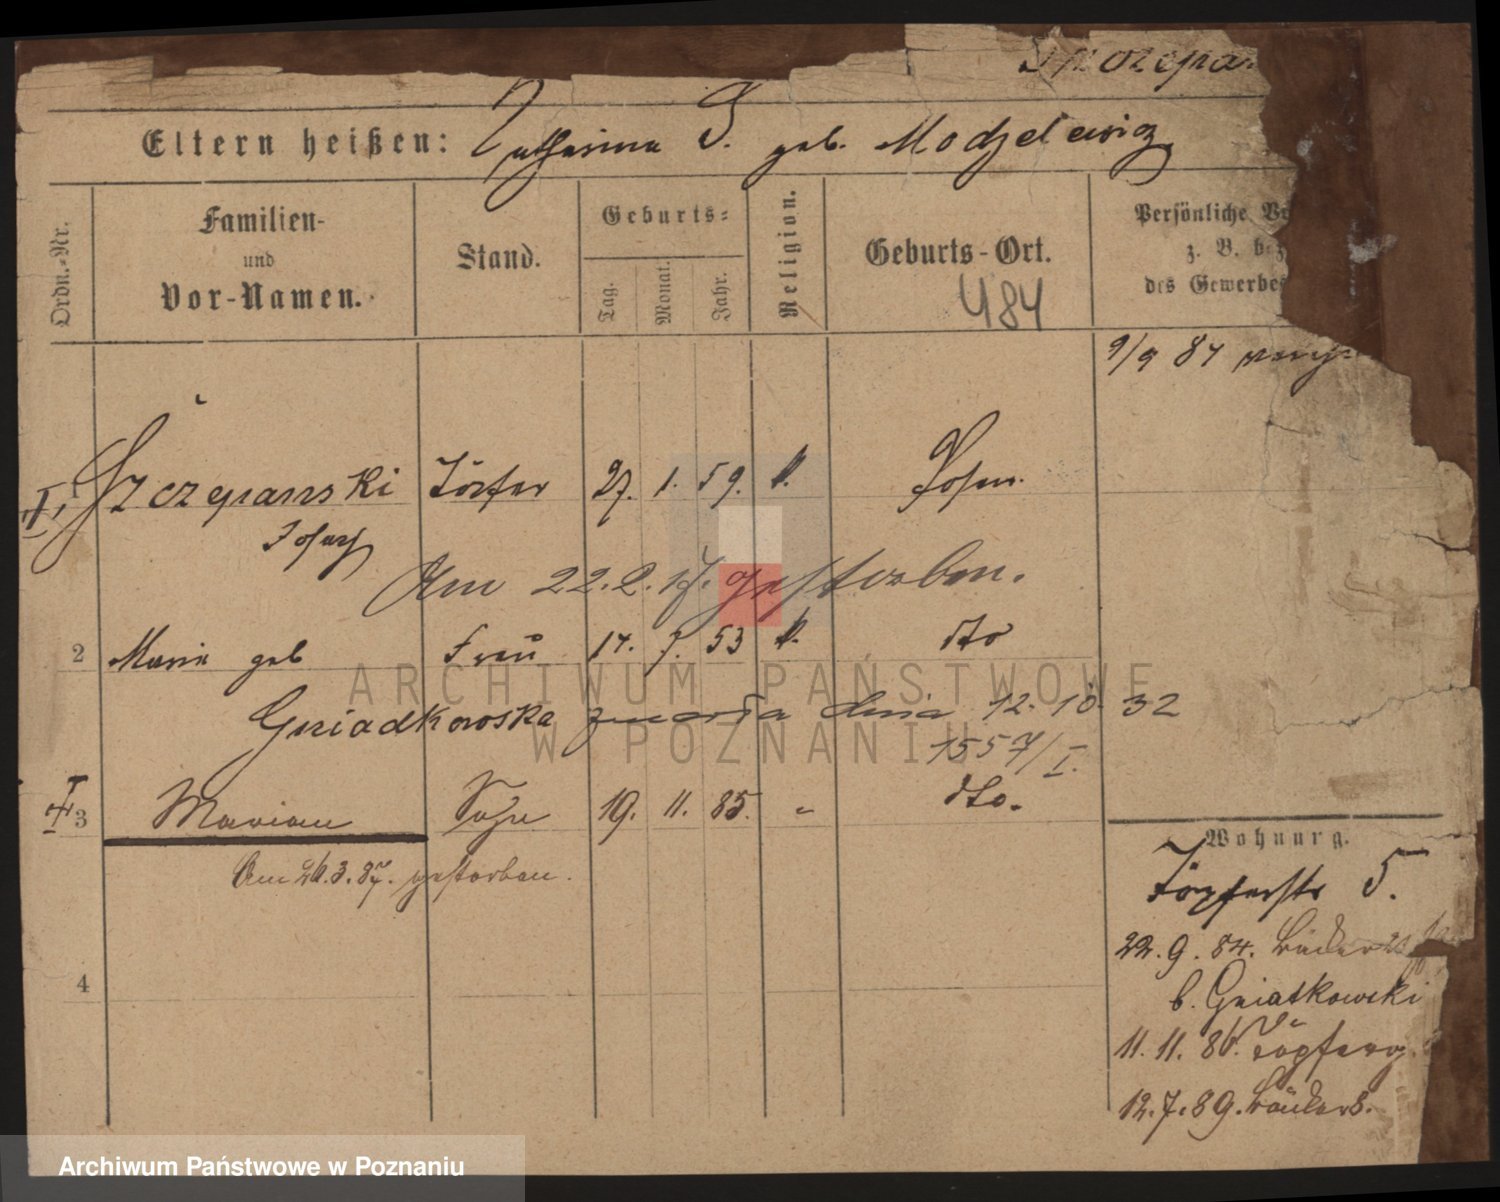 Szczepan
Eltern heißen: Catharina S. geb. Modzelewicz
Ordn.-Nr.
Familien-
und
Vor-Namen.
Stand.
Geburts-
Tag.
Monat.
Jahr.
Religion.
Geburts-Ort.
484
Persönliche Ve
z. B. bez
des Gewerbes
9/9 84
I 1 Szczepanski Töpfer 27. 1. 59. k. Posen.
Josef
Am 22.2.17. gestorben.
2 Maria geb Frau 14. 7. 53 k. dto
Gniadkowska zmarła dnia 12. 10. 32
1557/I.
3 Marian Sohn 19. 11. 85. " dto.
Am 26.3.87. gestorben.
4
Wohnung.
Töpferstr 5.
22. 9. 84.
b. Gniatkowski
11. 11. 86. Töpferg.
12. 7. 89.
ARCHIWUM PAŃSTWOWE
W POZNANIU
Archiwum Państwowe w Poznaniu